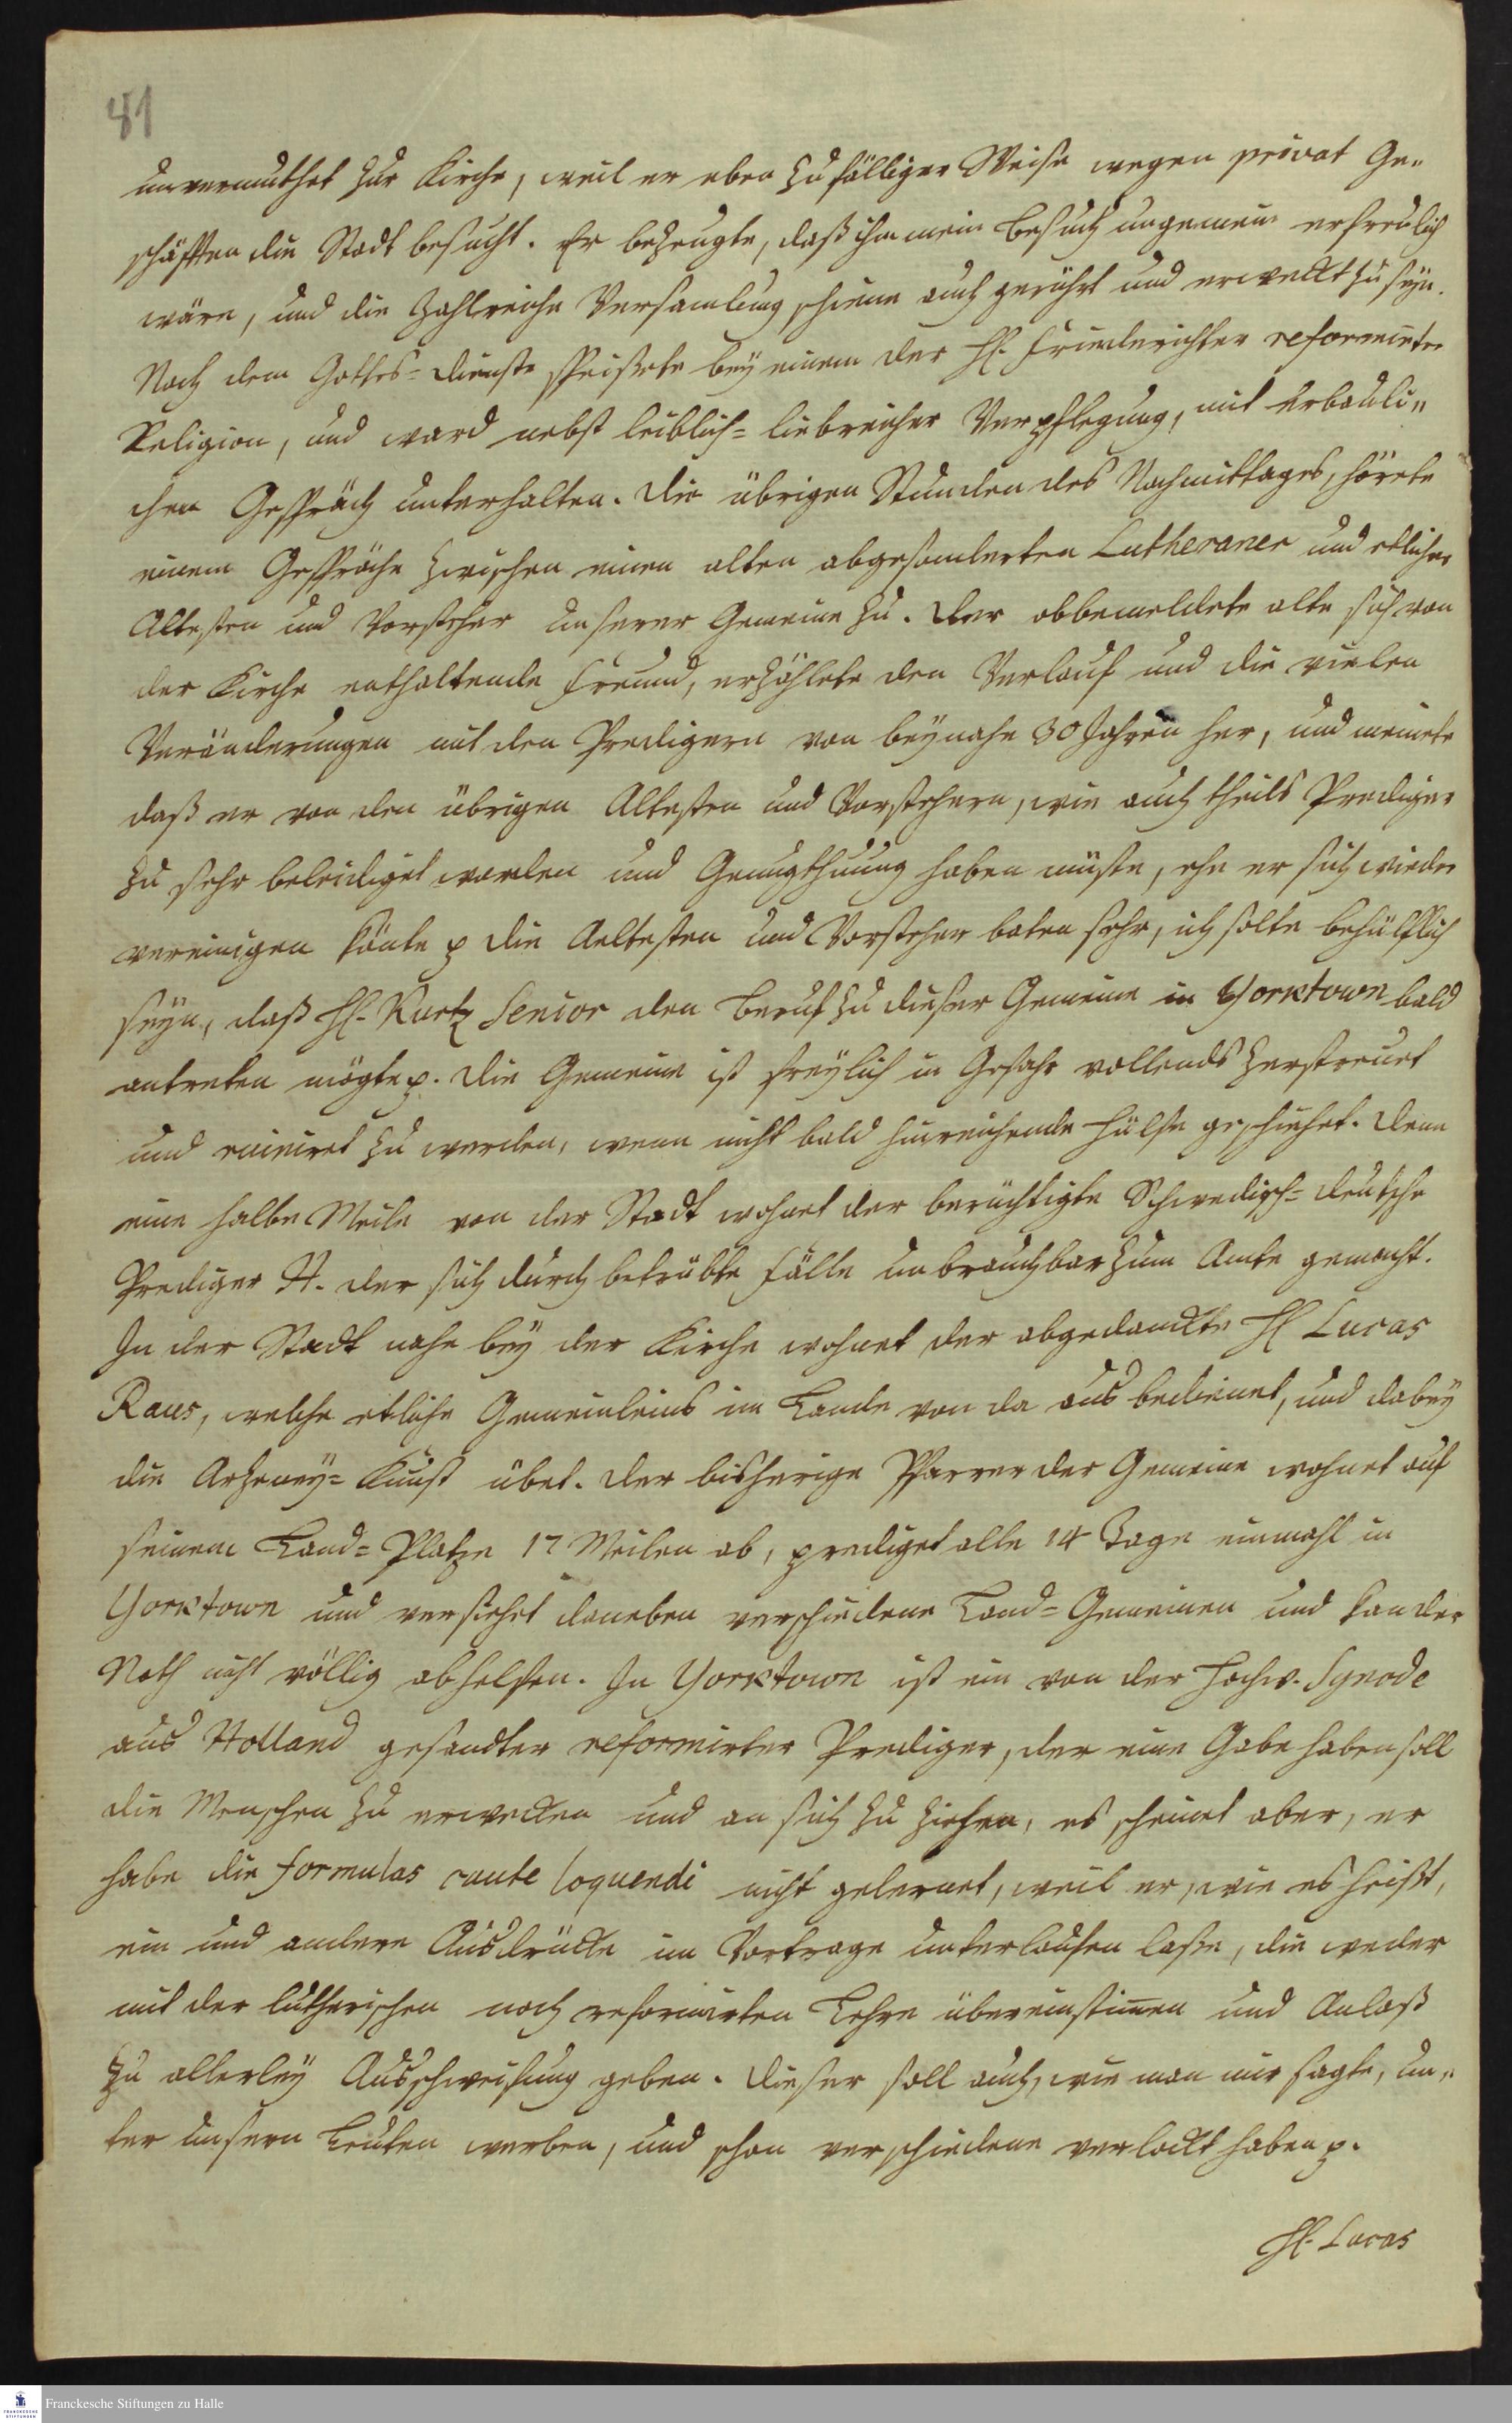 41
unvermuthet zur Kirche, weil er eben zufälliger Weise wegen privat Ge„
schäfften die Stadt besucht. Er bezeugte, daß ihm mein Besuch ungemein erfreulich
wäre, und die zahlreiche Versamlung schiene auch gerührt und erweckt zu seyn.
Nach dem Gottes=dienste speißete bey einem der H. Friedrichter reformirter
Religion, und ward nebst leiblich=liebreicher Verpflegung, mit erbauli„
chen Gespräch unterhalten. Die übrigen Stunden des Nachmittages, hörete
einem Gespräche zwischen einen alten abgesonderten Lutheraner und etlicher
Altesten und Vorsteher unserer Gemeine zu. Der obbemeldete alte sich von
der Kirche enthaltende Freund, erzählete den Verlauf und die vielen
Veränderungen mit den Predigern von beynahe 30 Jahren her, und meinete
daß er von den übrigen Altesten und Vorstehern, wie auch theils Prediger
zu sehr beleidiget worden und Genugthuung haben müste, ehe er sich wieder
vereinigen könte p die Aeltesten und Vorsteher baten sehr, ich solte behülflich
seyn, daß H. Kurtz Senior den Beruf zu dieser Gemeine in Yorktown bald
antreten mögte p. Die Gemeine ist freylich in Gefahr vollends zerstreuet
und ruiniret zu werden, wenn nicht bald hinreichende Hülfe geschiehet. Denn
eine halbe Meile von der Stadt wohnet der berüchtigte Schwedisch=deutsche
Prediger H. der sich durch betrübte Fälle unbrauchbar zum Amte gemacht.
In der Stadt nahe bey der Kirche wohnet der abgedanckte H Lucas
Raus, welche etliche Gemeinleins im Lande von da aus bedienet, und dabey
die Arzeney=Kunst übet. Der bisherige Pfarrer der Gemeine wohnet auf
seinem Land=Platze 17 Meilen ab, prediget alle 14 Tage einmahl in
Yorktown und versiehet daneben verschiedene Land=Gemeinen und kan der
Noth nicht völlig abhelfen. In Yorktown ist ein von der Hochw. Synode
aus Holland gesandter reformirter Prediger, der eine Gabe haben soll
die Menschen zu erwecken und an sich zu ziehen, es scheinet aber, er
habe die formulas caute loquendi nicht gelernet, weil er, wie es heißt,
ein und andere Ausdrücke im Vortrage unterlaufen laße, die weder
mit der lutherischen noch reformirten Lehre übereinstimen und Anlaß
zu allerley Ausschweifung geben. Dieser soll auch, wie man mir sagte, un„
ter unsern Leuten werben, und schon verschiedene verlockt haben p.
H. Lucas
FRANCKESCHE STIFTUNGEN
Franckesche Stiftungen zu Halle